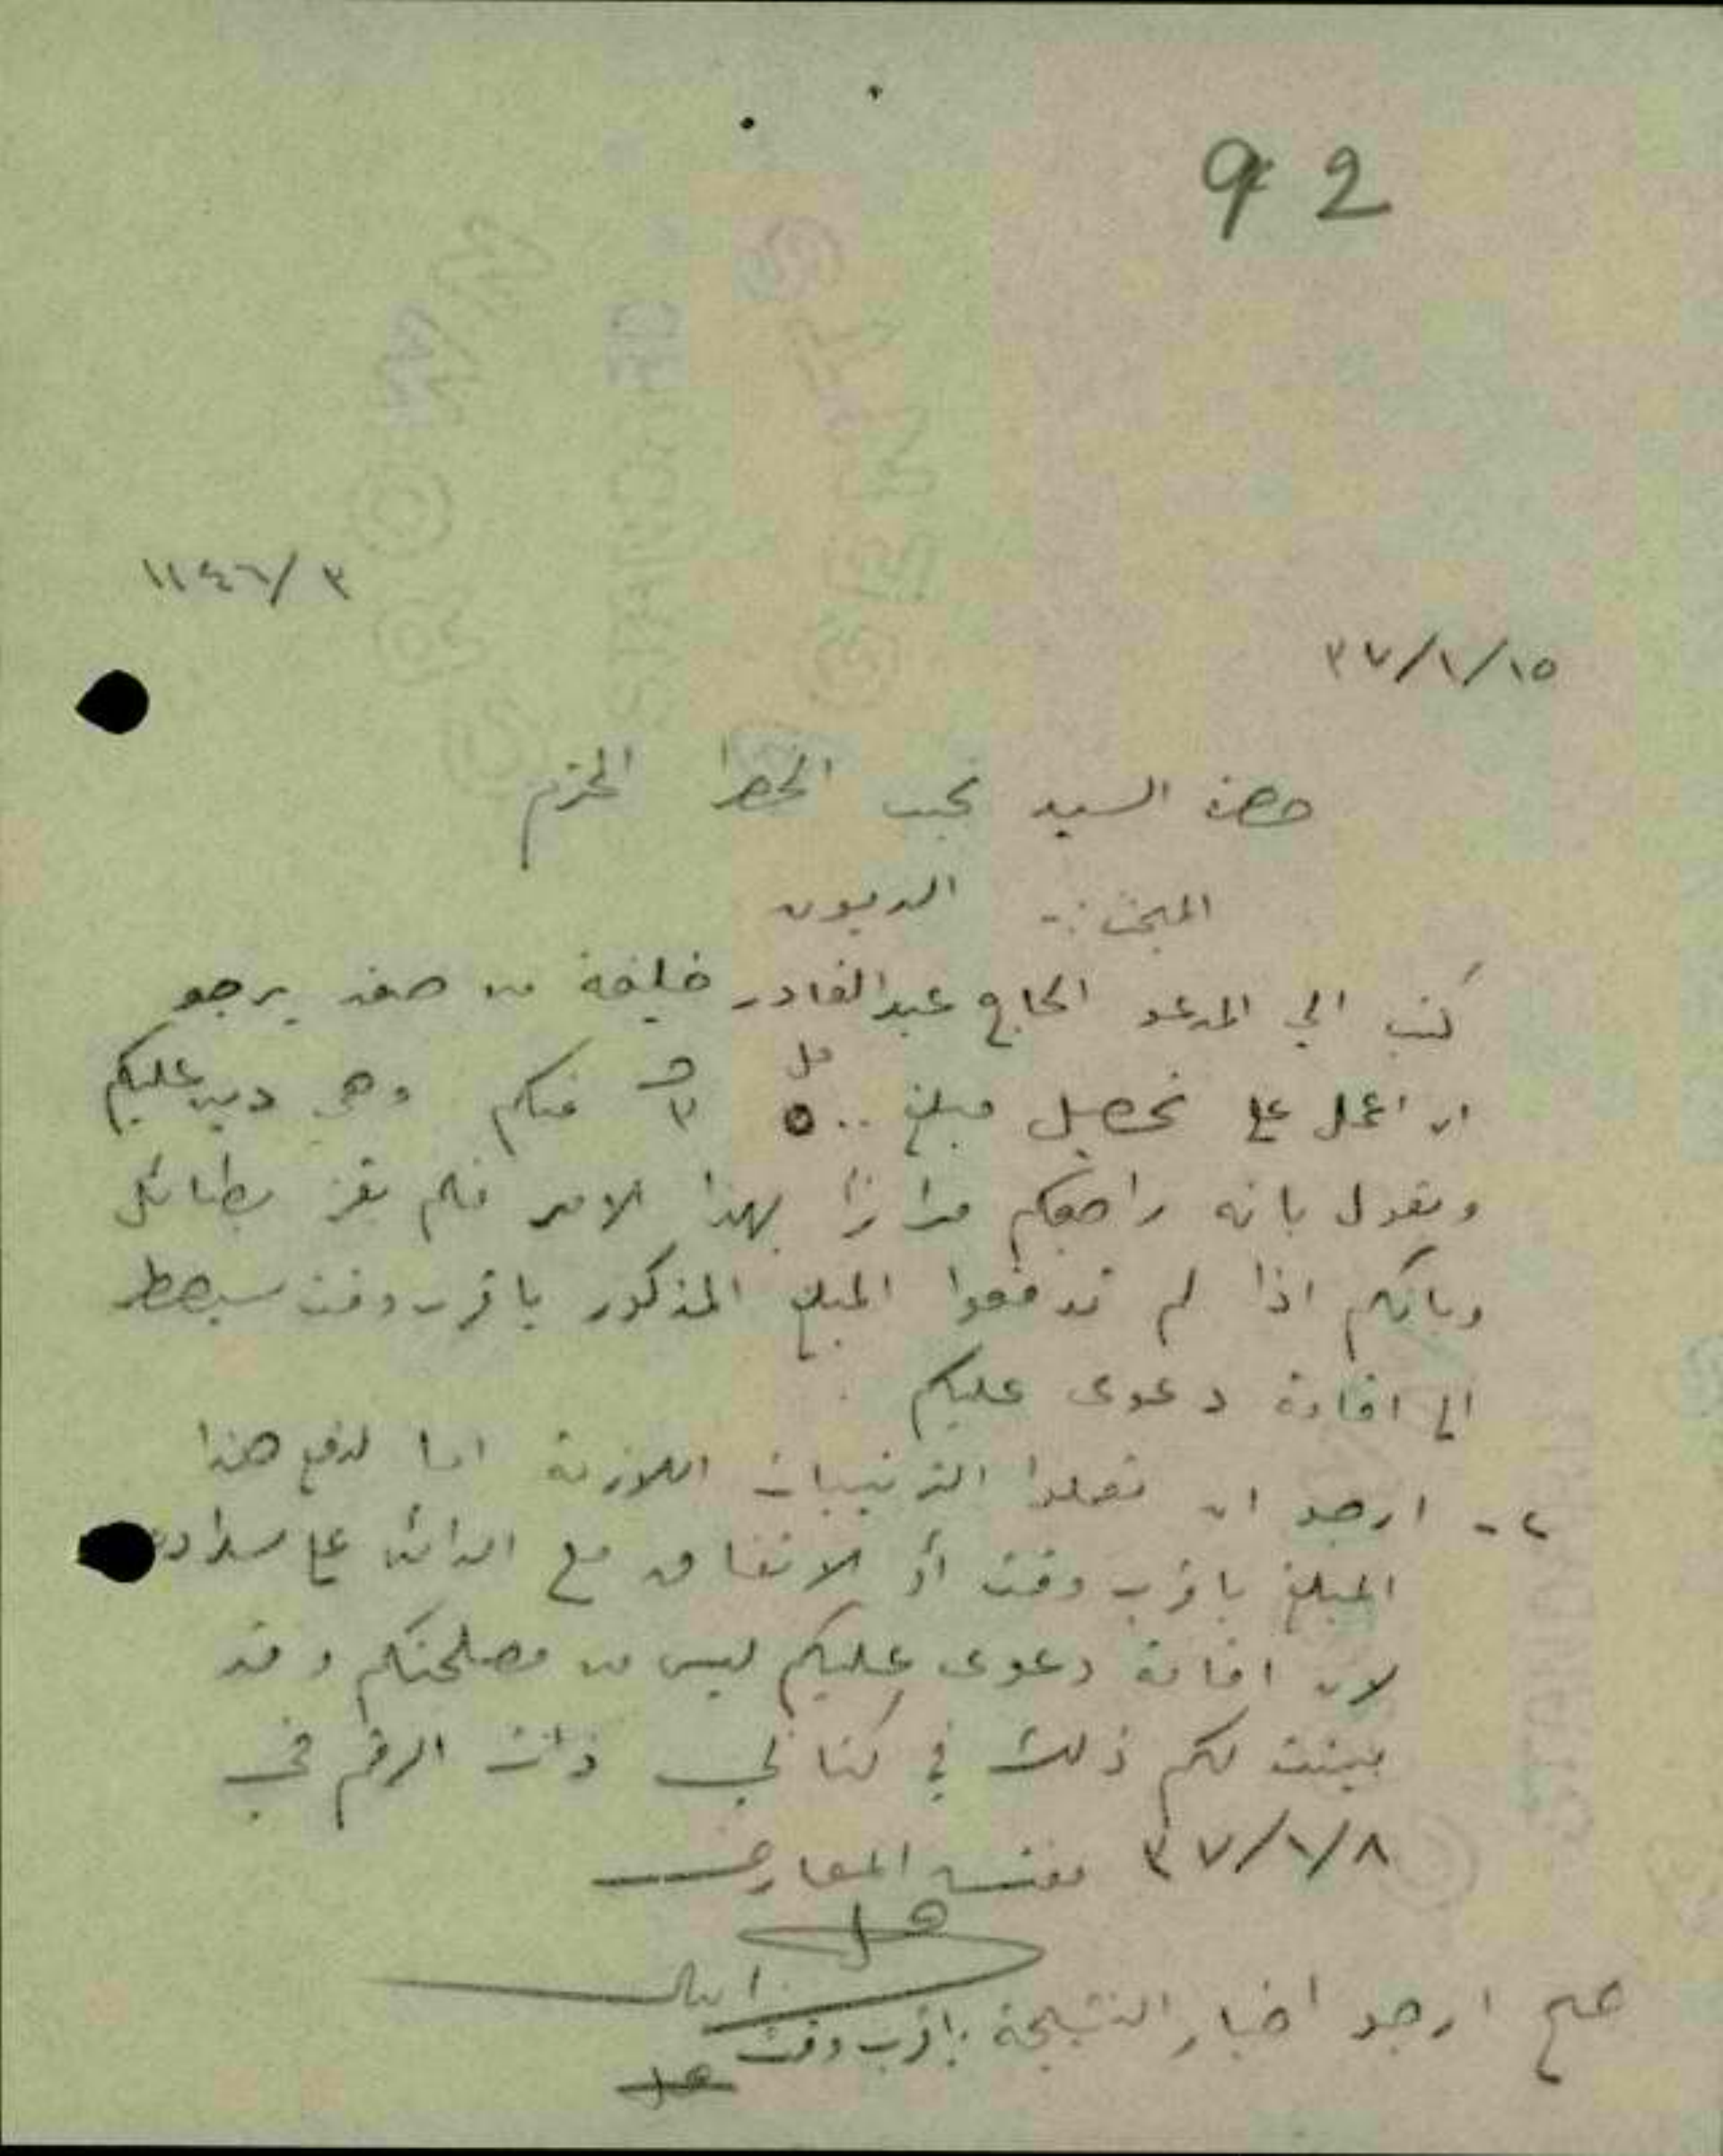 92
١١٤٦/٣
٣٧/١/١٥
حضرة السيد نجيب الخضرا المحترم
المبحث :- الديون
كتب الي المدعو الحاج عبدالقادر خليفة من صفد يرجو
ان اعمل على تحصيل مبلغ ٥٠٠ مل ٣ ج منكم وهي دين عليكم
ويقول بانه راجعكم مرارًا بهذا الامر فلم يفز بطائل
وبانكم اذا لم تدفعوا المبلغ المذكور باقرب وقت سيضطر
الى اقامة دعوى عليكم
٢- ارجو ان تعملوا الترتيبات اللازمة اما لدفع هذا
المبلغ باقرب وقت أو الاتفاق مع الدائن على سداده
لان اقامة دعوى عليكم ليس من مصلحتكم وقد
بينت لكم ذلك في كتابي ذات الرقم في
٣٧/١/٨ مفتش المعارف
ارجو اخبار النتيجة باقرب وقت